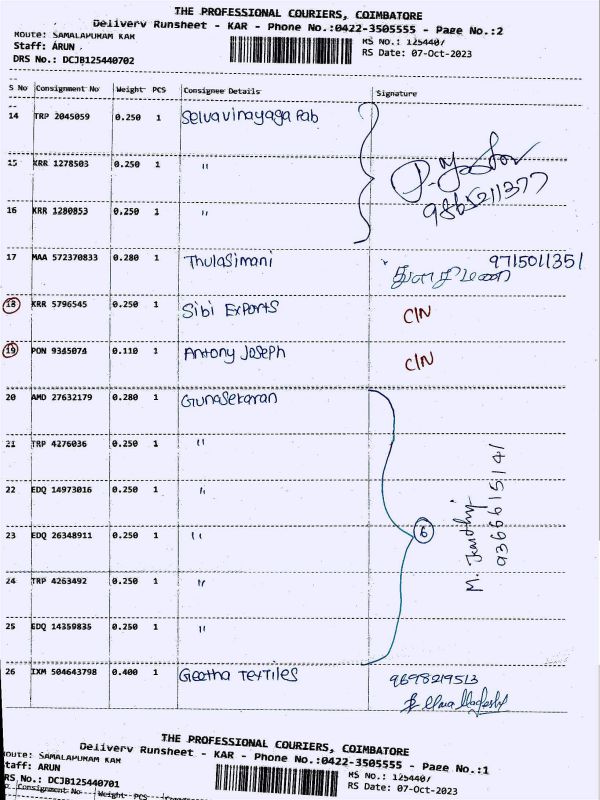 THE PROFESSIONAL COURIERS, COIMBATORE
Delivery Runsheet - KAR - Phone No.:0422-3505555 - Page No.:2
Route: SAMALAPURAM KAR
RS No.: 1254407
Staff: ARUN
RS Date: 07-Oct-2023
DRS No.: DCJB125440702
S No Consignment No Weight PCS Consignee Details Signature
14 TRP 2045059 0.250 1 Selvavinayaga Fab
15 KRR 1278503 0.250 1 "
9865211377
16 KRR 1280853 0.250 1 "
17 MAA 572370833 0.280 1 Thulasimani 9715011351
துளசிமணி
18 KRR 5796545 0.250 1 Sibi Exports C/N
19 PON 9345074 0.110 1 Antony Joseph C/N
20 AMD 27632179 0.280 1 Gunasekaran
21 TRP 4276036 0.250 1 "
22 EDQ 14973016 0.250 1 "
23 EDQ 26348911 0.250 1 "
6
24 TRP 4263492 0.250 1 "
25 EDQ 14359835 0.250 1 "
26 IXM 504643798 0.400 1 Geetha Textiles 9698219513
THE PROFESSIONAL COURIERS, COIMBATORE
Delivery Runsheet - KAR - Phone No.:0422-3505555 - Page No.:1
Route: SAMALAPURAM KAR
RS No.: 1254407
Staff: ARUN
RS Date: 07-Oct-2023
RS No.: DCJB125440701
Consignment No Weight PCS